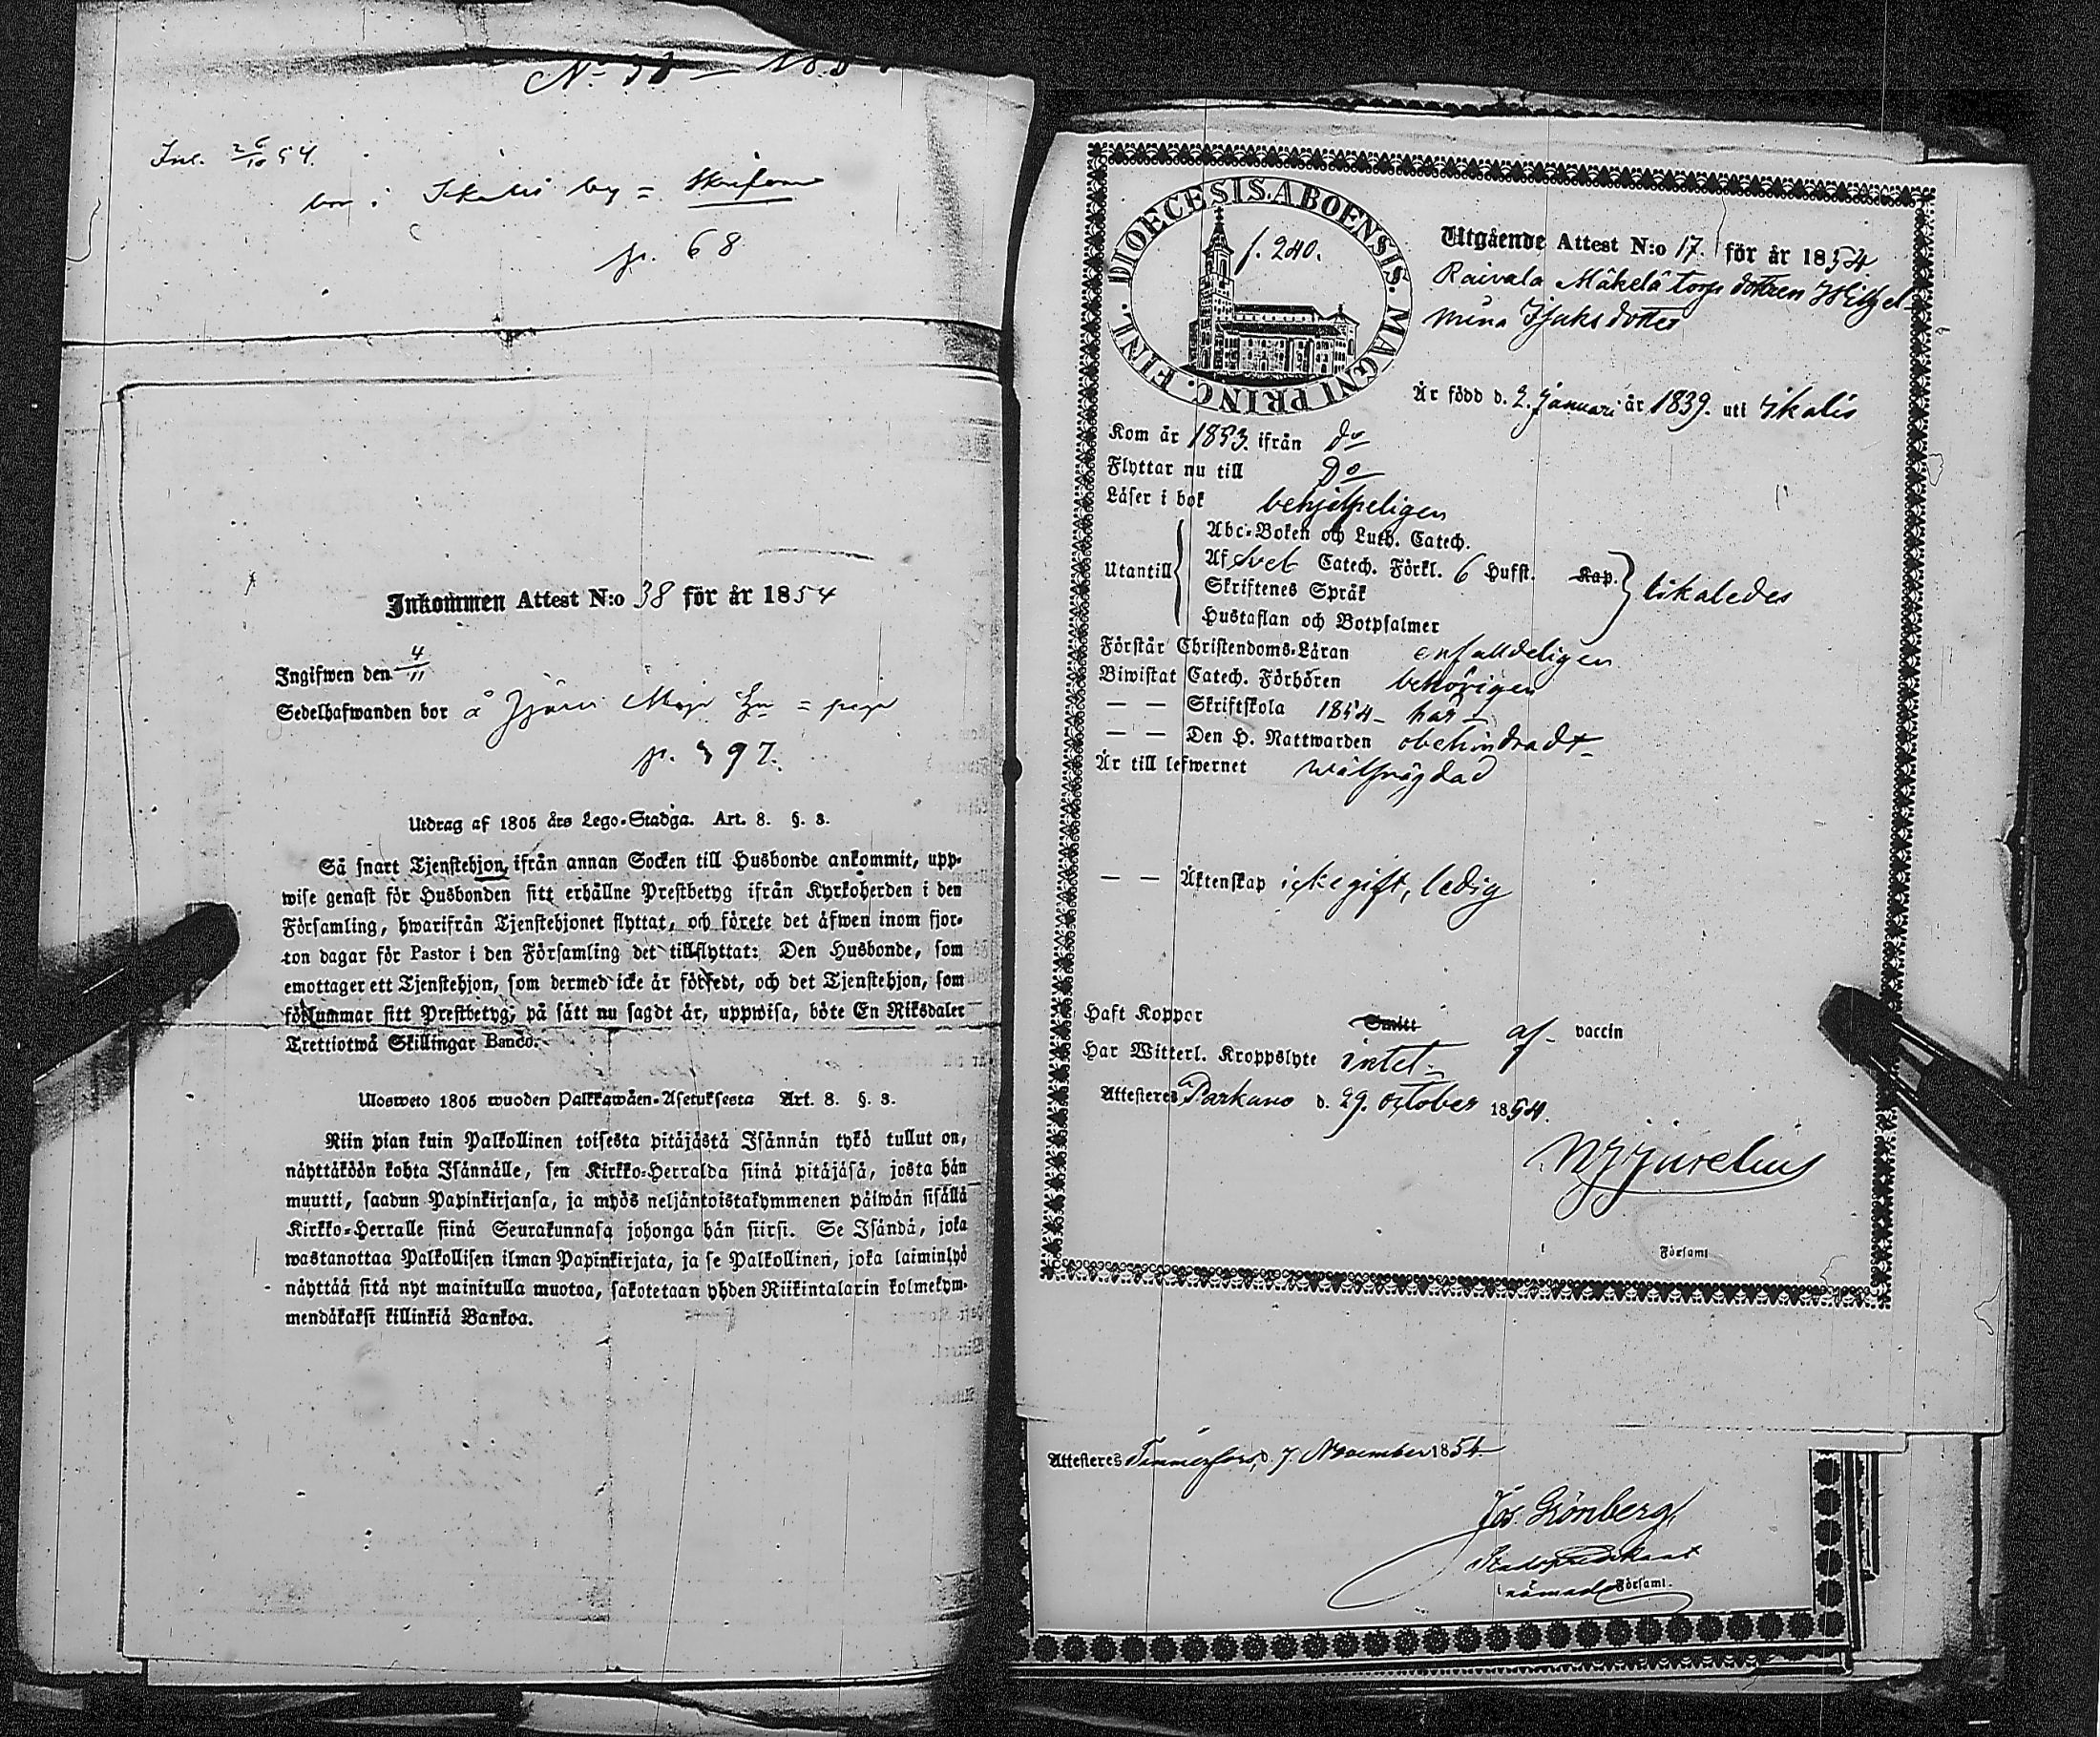 Inl. 26/10 54.
bor i Ikalis by =
p. 68
Inkommen Attest N:o 38 för år 1854
Ingifwen den 4/11
Sedelhafwanden bor å
p. 397.
Utdrag af 1805 års Lego-Stadga. Art. 8. §. 3.
Så snart Tjenstehjon, ifrån annan Socken till Husbonde ankommit, upp-
wise genast för Husbonden sitt erhållne Prestbetyg ifrån Kyrkoherden i den
Församling, hwarifrån Tjenstehjonet flyttat, och förete det äfwen inom fjor-
ton dagar för Pastor i den Församling det tillflyttat: Den Husbonde, som
emottager ett Tjenstehjon, som dermed icke är försedt, och det Tjenstehjon, som
försummar sitt Prestbetyg, på sätt nu sagdt är, uppwisa, böte En Riksdaler
Trettiotwå Skillingar Banco.
Ulosweto 1805 wuoden Palkkawäen-Asetuksesta Art. 8. §. 3.
Niin pian kuin Palkollinen toisesta pitäjästä Isännän tykö tullut on,
näyttäköön kohta Isännälle, sen Kirkko-Herralda siinä pitäjäsä, josta hän
muutti, saadun Papinkirjansa, ja myös neljäntoistakymmenen päiwän sisällä
Kirkko-Herralle siinä Seurakunnasa johonga hän siirsi. Se Isändä, joka
wastanottaa Palkollisen ilman Papinkirjata, ja se Palkollinen, joka laiminlyö
näyttää sitä nyt mainitulla muotoa, sakotetaan yhden Riikintalarin kolmekym-
mendäkaksi killinkiä Bankoa.
DIOECESIS. ABOENSIS. MAGNI PRINC. FINL.
f. 240.
Utgående Attest N:o 17. för år 1854
Raivala Mäkelä torp dottren Wilhel-
mina Isaksdotter
Är född d. 2. Januari år 1839. uti Ikalis
Kom år 1853. ifrån do
Flyttar nu till Do
Läser i bok behjelpeligen
Utantill
Abc-Boken och Luth. Catech.
Af Svet Catech. Förkl. 6 Hufst. Kap.
Skriftenes Språk
Hustaflan och Botpsalmer
likaledes
Förstår Christendoms-Läran enfalldeligen
Biwistat Catech. Förhören behörigen
— — Skriftskola 1854 – här –
— — Den H. Nattwarden obehindradt –
Är till lefwernet wälfrägdad
— — Äktenskap icke gift, ledig
Haft Koppor Smitt af – vaccin
Har Witterl. Kroppslyte intet –
Attesteres Parkano d. 29. October 1854.
Församl
Attesteres Tammerfors, d. 7. November 1854.
Jos. Grönberg
Stadspredikant
i nämnde Församl.